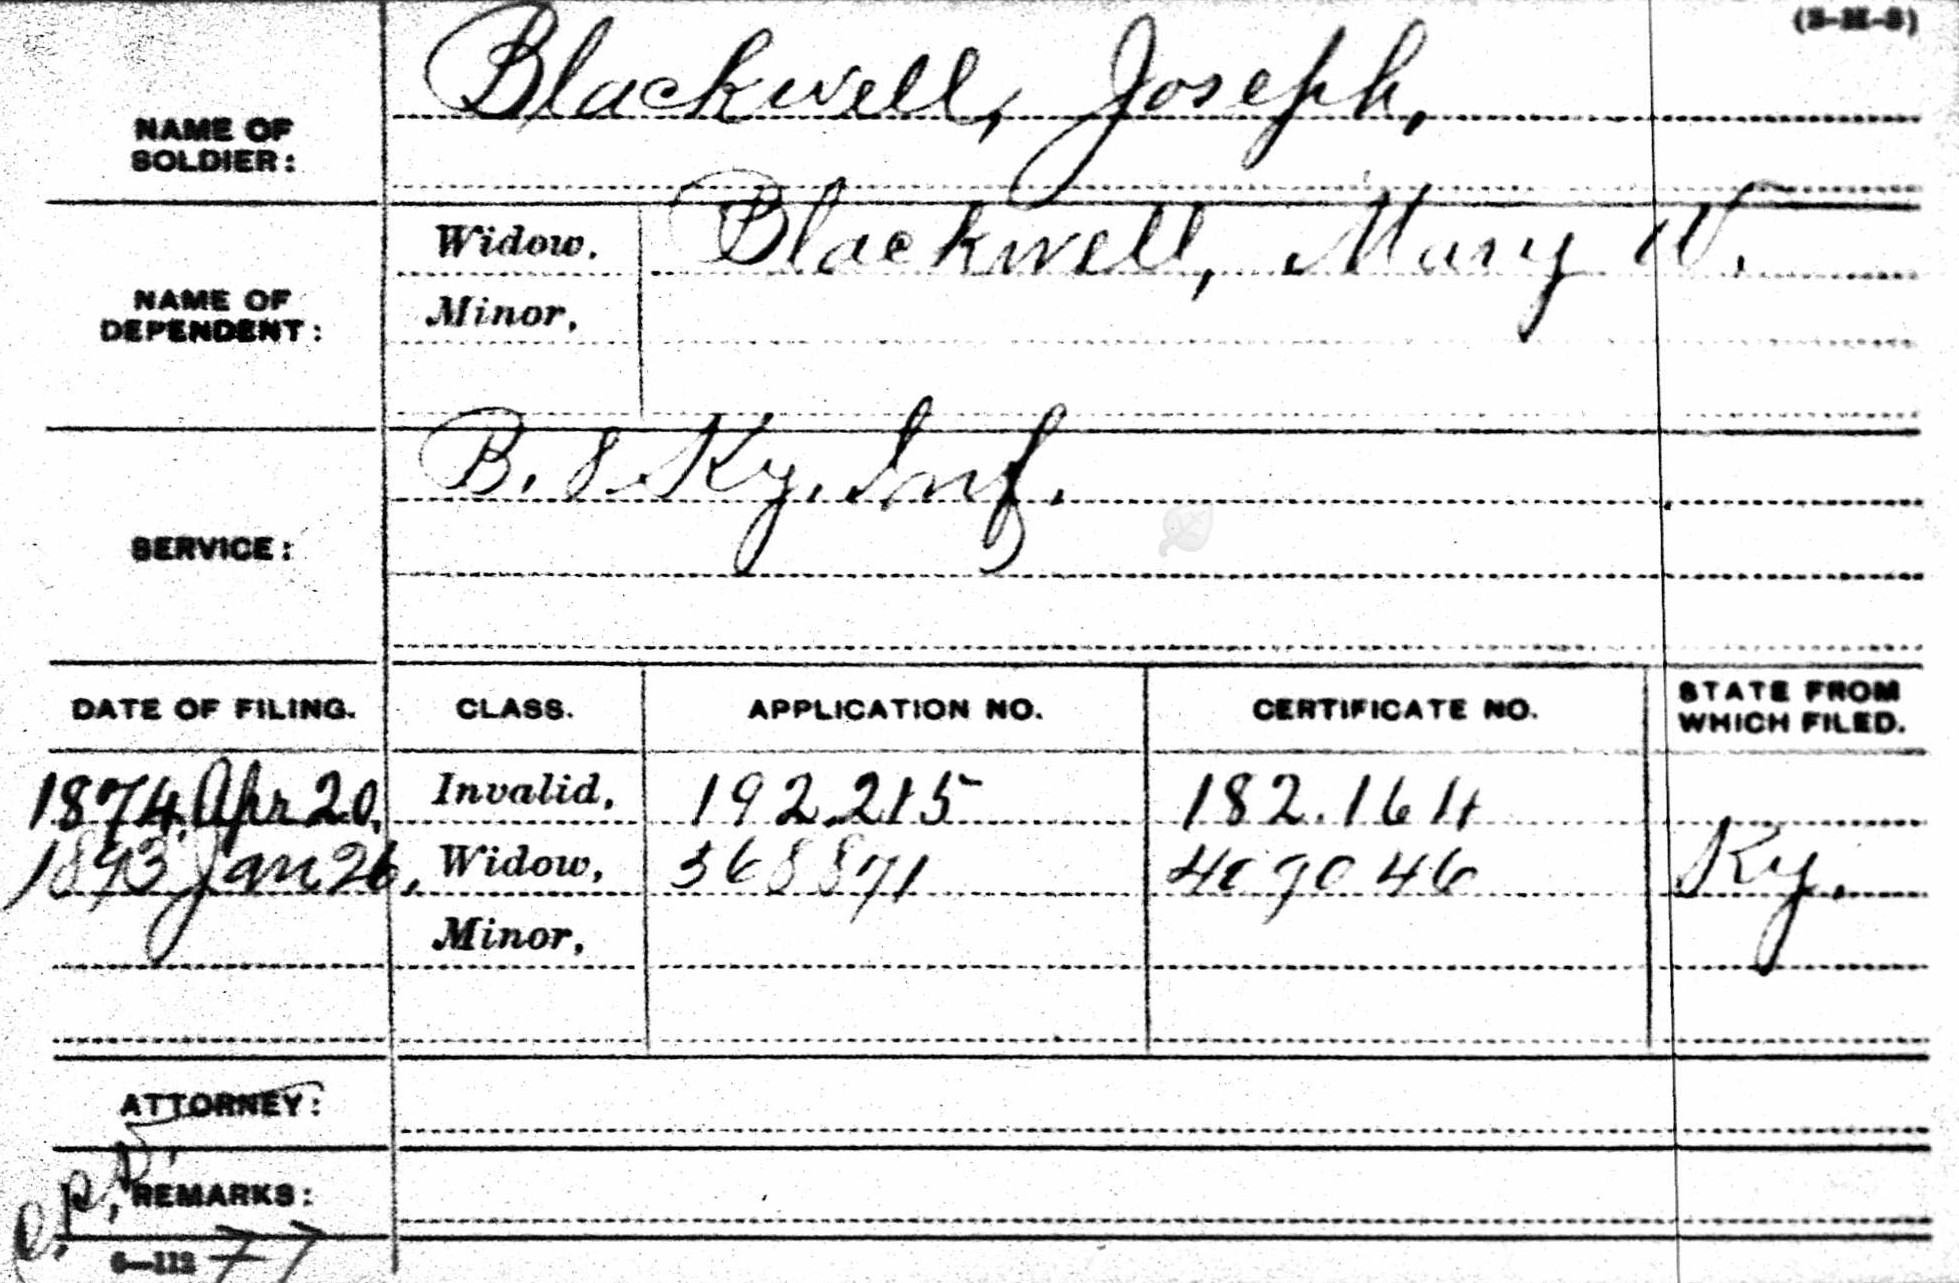 (3-M-3)
Blackwell, Joseph,
NAME OF
SOLDIER:
Widow. Blackwell, Mary W.
NAME OF
DEPENDENT:
Minor,
B. 8 Ky. Inf.
SERVICE:
DATE OF FILING. CLASS. APPLICATION NO. CERTIFICATE NO. STATE FROM WHICH FILED.
1874 Apr 20, Invalid, 192.215 182.164
1893 Jan 26, Widow, 568871 409046 Ky.
Minor,
ATTORNEY:
REMARKS:
6—112